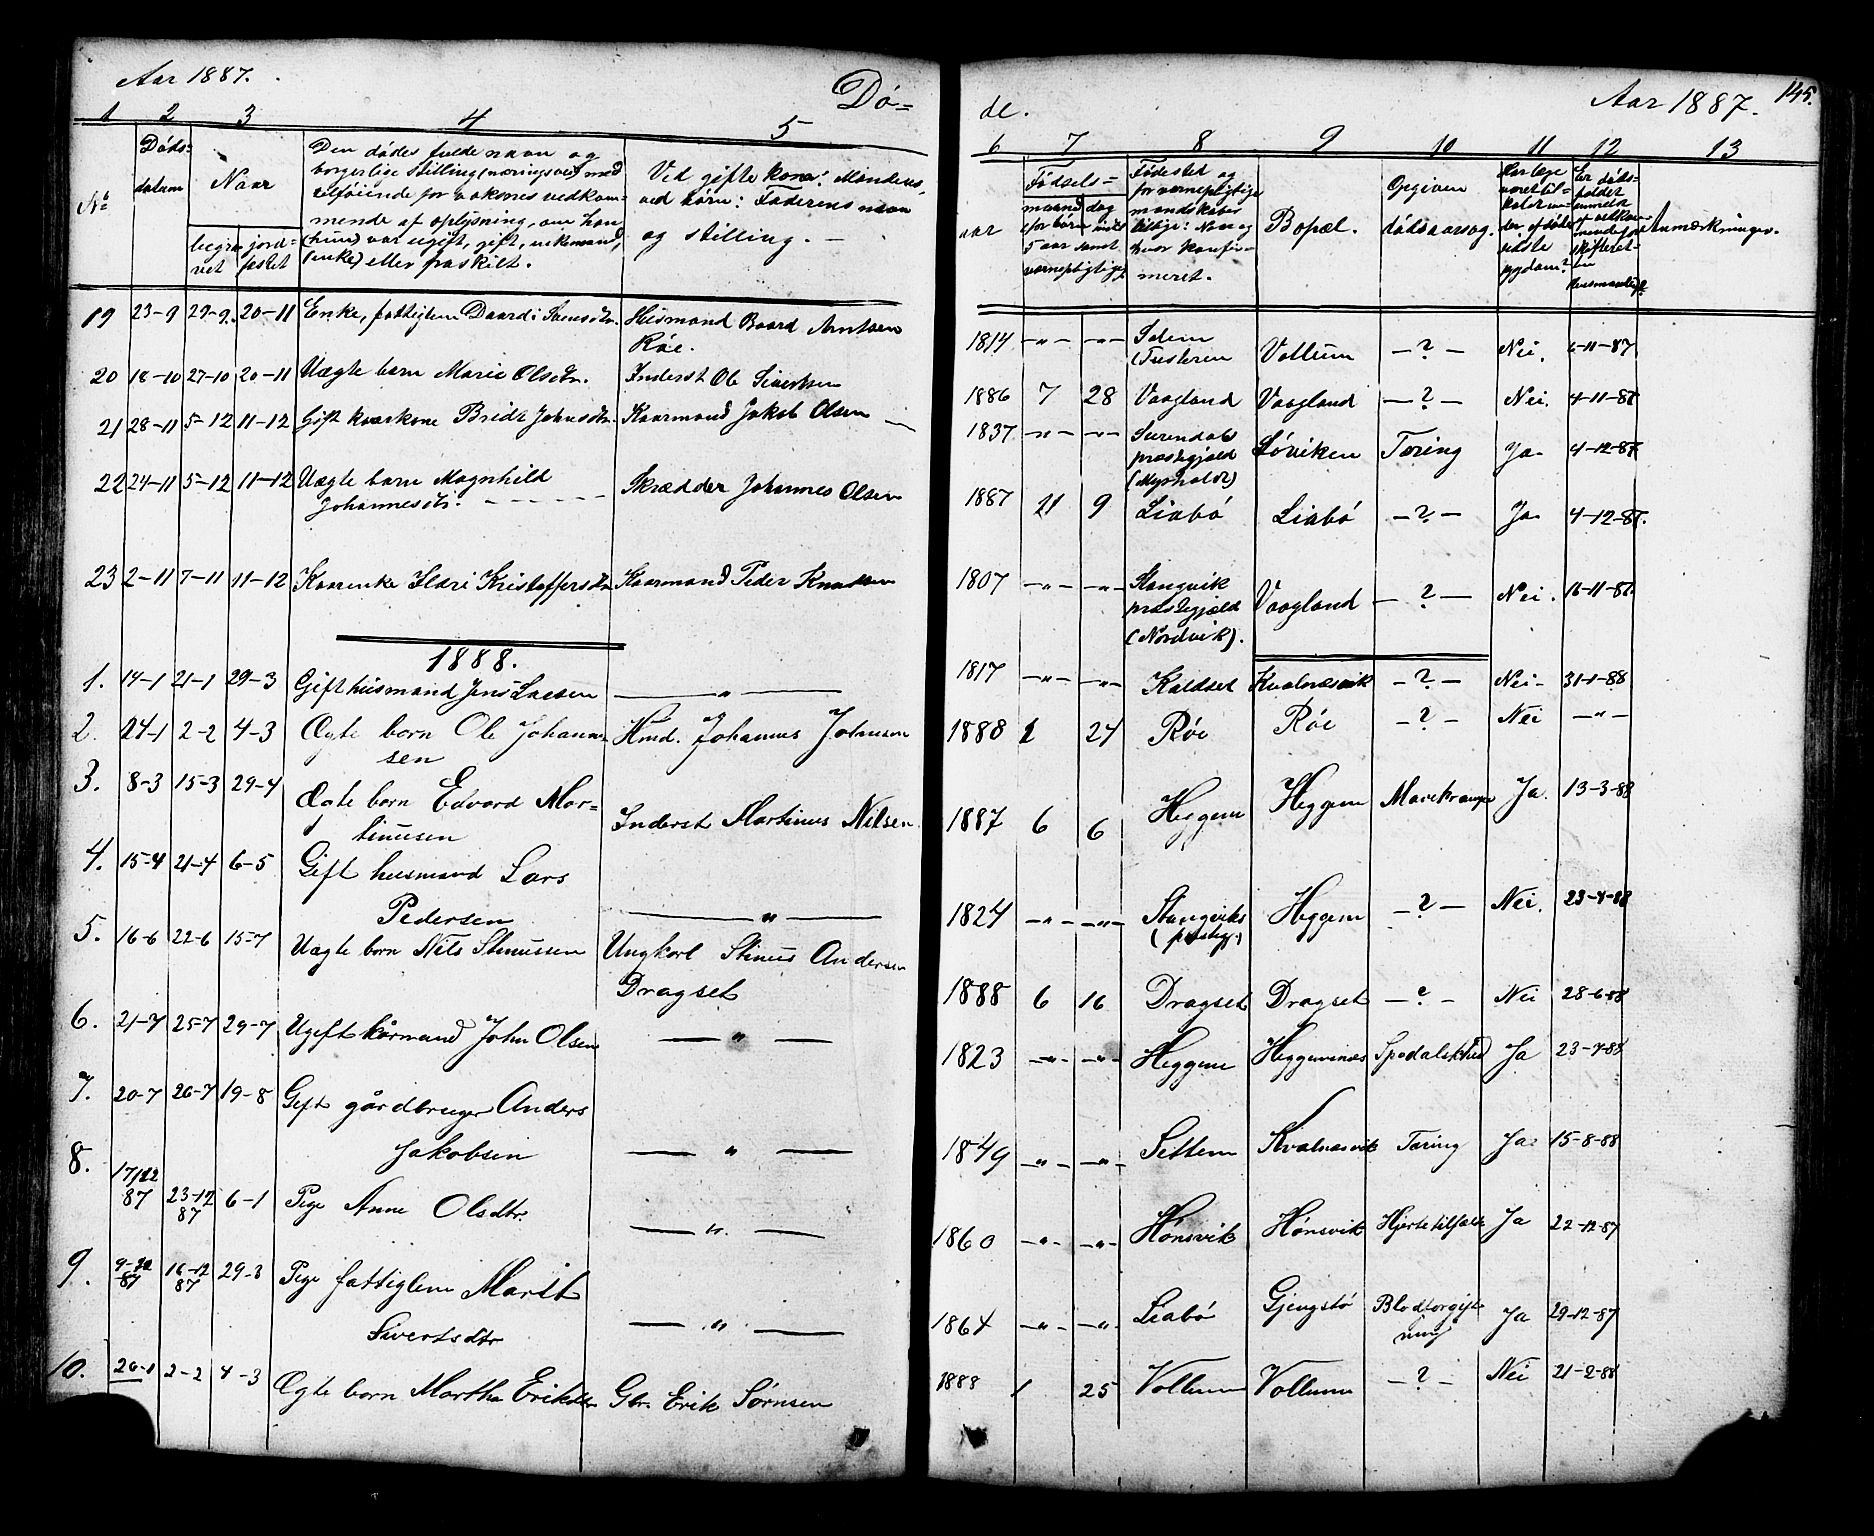 Aar 1887.
Dö=
1 2 3 4 5
No
Döds=
datum
Naar
begra
vet
jord=
festet
Den dödes fulde navn og
borgerlige stilling (næringsvei) med
tilföiende for voksnes vedkom-
mende af oplysning, om han
(hun) var ugift, gift, enkemand,
(enke) eller fraskilt.
Ved gifte koner: Mandens,
ved börn: Faderens navn
og stilling. —
19 23-9 29-9. 20-11 Enke, fattiglem Daardi Husmand Baard Arntsen
Röe.
20 18-10 27-10 20-11 Uægte barn Marie Olsdtr. Inderst Ole Sivertsen
21 28-11 5-12 11-12 Gift Bride Johnsdtr. Kaarmand Jakob Olsen —
22 24-11 5-12 11-12 Uægte barn Magnhild Skrædder Johannes Olsen
Johannesdtr.
23 2-11 7-11 11-12 Kaarenke Ildri Kristoffersdtr. Kaarmand Peder Knudsen
1888.
1. 14-1 21-1 29-3 Gift husmand Jens Larsen — " —
2. 27-1 2-2 4-3 Ægte barn Ole Johann- Hmd. Johannes Johnsen
sen
3. 8-3 15-3 29-4 Ægte barn Edvard Mar= Inderst Martinus Nilsen.
tinusen
4. 15-4 21-4 6-5 Gift husmand Lars
Pedersen — " —
5. 16-6 22-6 15-7 Uægte barn Nils Stinussen Ungkarl Stinus Andersen
Dragset
6. 21-7 25-7 29-7 Ugift kårmand John Olsen — " —
7. 20-7 26-7 19-8 Gift gårdbruger Anders
Jakobsen — " —
8. 17/12
87 23-12
87 6-1 Pige Anne Olsdtr. — " —
9. 87 16-12
87 29-3 Pige fattiglem Marit
Sivertsdtr — " —
10. 26-1 2-2 4-3 Ægte barn Martha Eriksdtr Gbr. Erik Sörnsen
de.
Aar 1887. 145.
6 7 8 9 10 11 12 13
aar
Födsels=
maaned dag
(for börn inds
5 aar samt
værnepligtige)
Födested og
for værnepligtige
mandskaber
tillige: Naar og
hvor konfir-
meret.
Bopæl.
Opgiven
dödsaarsag.
Har læge
været til-
kaldt un-
der
sidste
sygdom?
Er döds-
faldet
anmeldt
Anmærkninger.
1814 — " — — " — Vollum — ? — Nei. 6-11-87
1886 7 28 Vaagland Vaagland — ? — Nei. 4-11-87
1837 — " — — " — Surendals
præstegjæld Söviken Tæring Ja 4-12-87
1887 21 9 Liabö Liabö — ? — Ja 4-12-87.
1807 — " — — " — Stangvik
præstegjæld
(Nordvik). Vaagland — ? — Nei. 16-11-87.
1817 — " — — " — Kaldset Kvalnæsvik — ? — Nei- 31-1-88
1888 1 24 Röe Röe — ? — Nei — " —
1887 6 6 Heggem Heggem Mavekramper Ja. 13-3-88
1824 — " — — " — Stangviks
(præstgj.) Heggem — ? — Nei. 23-4-88
1888 6 16 Dragset Dragset — ? — Nei 28-6-88
1823 — " — — " — Heggem Heggemsnæs Spedalskhed Ja 23-7-88
1849 — " — — " — Settem Kvalnæsvik Tæring Ja 15-8-88
1860 — " — — " — Hönsvik Hönsvik Hjertetilfælde Ja 22-12-87
1864 — " — — " — Liabö Gjengstö Blodforgift-
ning Ja 29-12-87
1888 1 25 Vollum Vollum — ? — Nei 21-2-88